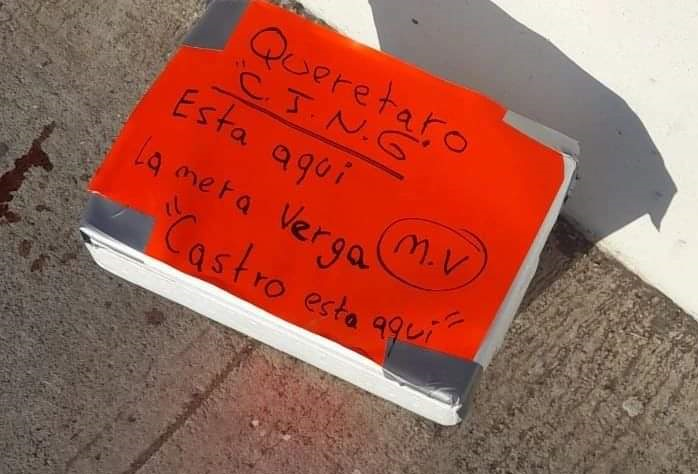 Queretaro
"C.J.N.G"
Esta aqui
la mera Verga M.V
"Castro esta aqui"